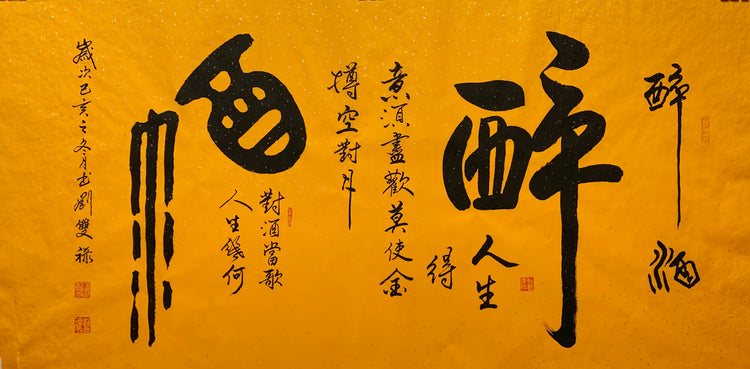 醉酒
醉
人生
得
意須盡歡莫使金
樽空對月
酒
對酒當歌
人生幾何
歲次己亥之冬月书劉雙祿